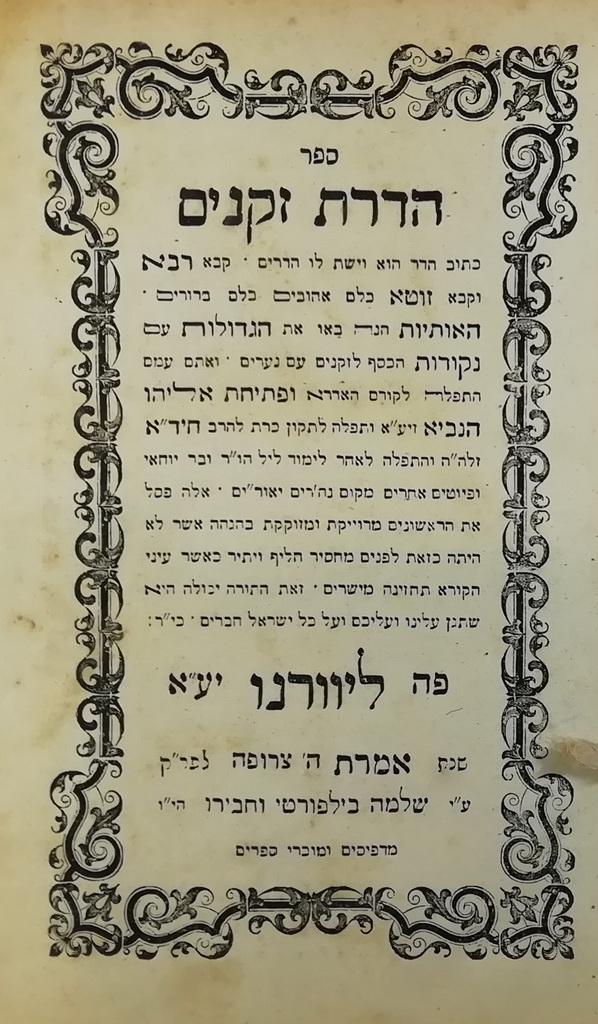 ספר
הדרת זקנים
כתוב הדר הוא וישת לו הדרים · קבא רבא
וקבא זוטא כלם אהובים כלם ברורים ·
האותיות הנה באו את הגדולות עם
נקודות הכסף לזקנים עם נערים · ואתם עמם
התפלה לקודם האדרא ופתיחת אליהו
הנביא זיע"א ותפלה לתקון כרת להרב חיד"א
זלה"ה והתפלה לאחר לימוד ליל הו"ר ובר יוחאי
ופיוטים אחרים מקום נה'רים יאור"ים · אלה פסל
את הראשונים מדוייקת ומזוקקת בהגהה אשר לא
היתה כזאת לפנים מחסיר חליף ויתיר כאשר עיני
הקורא תחזינה מישרים · זאת התורה יכולה היא
שתגן עלינו ועליכם ועל כל ישראל חברים · כי"ר :
פה ליוורנו יע"א
שנת אמרת ה' צרופה לפר"ק
ע"י שלמה בילפורטי וחבירו הי"ו
מדפיסים ומוכרי ספרים